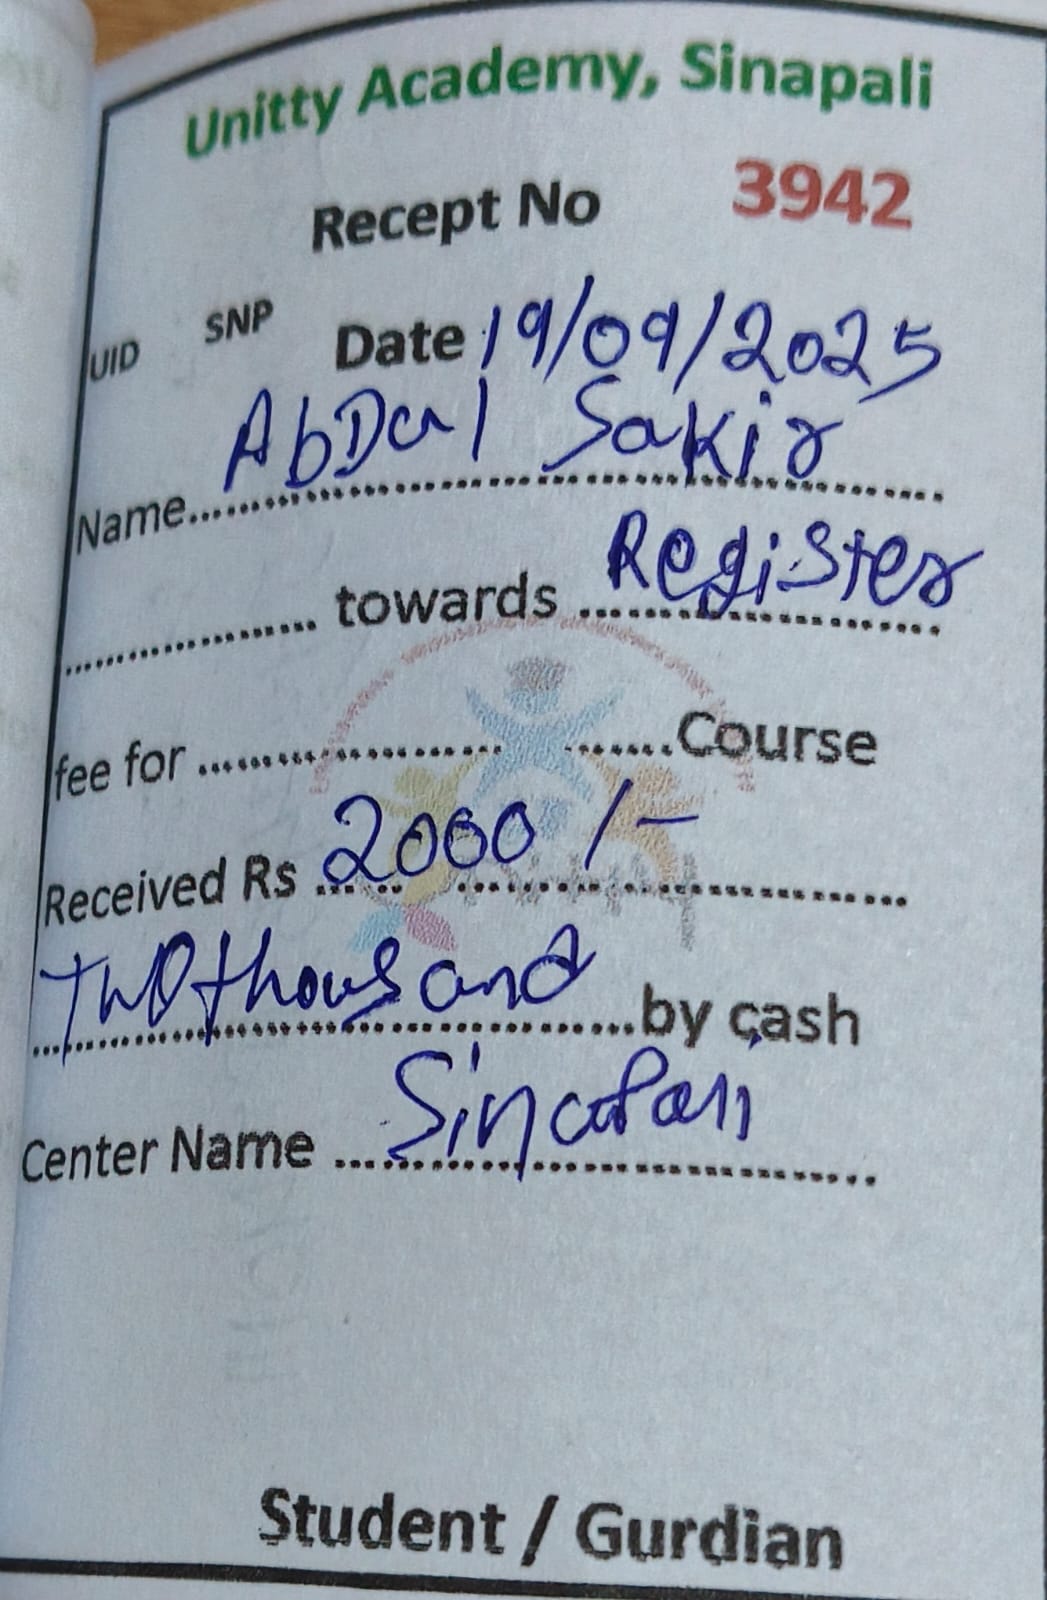 Unitty Academy, Sinapali
Recept No 3942
UID SNP Date 19/09/2025
Name........AbDul Sakir........
................ towards ....Register....
fee for ........................ .......Course
Received Rs ....2000/-....
....Two thousand....by cash
Center Name ....Sinapali....
Student / Gurdian